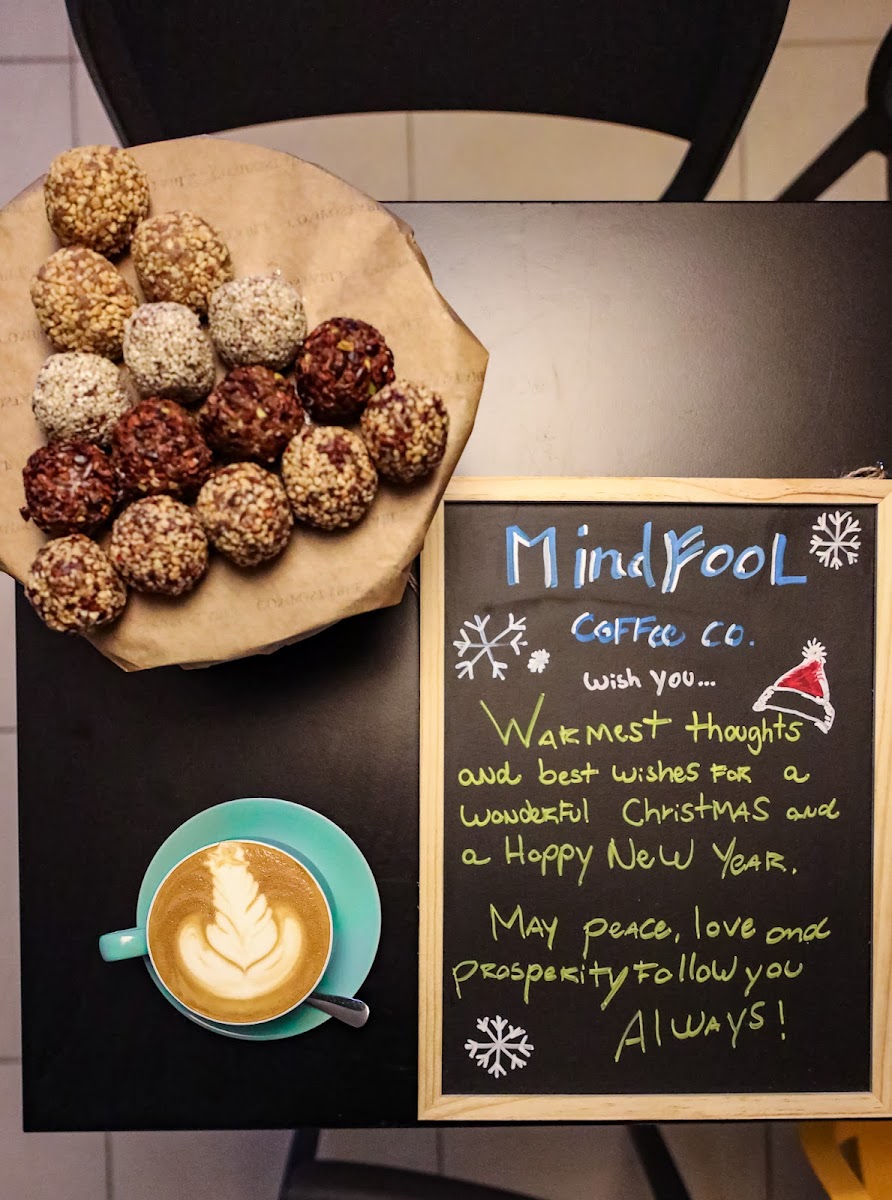 MindFooL
Coffee Co.
wish you...
Warmest thoughts
and best wishes for a
wonderful Christmas and
a Happy New Year.
May peace, love and
prosperity follow you
Always!